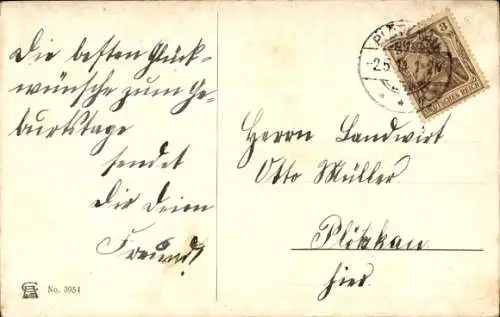 Die besten Glück-
wünsche zum Ge-
burtstage
sendet
Dir Dein
Freund
Herrn Landwirt
Otto Müller
Plötzkau
hier.
No. 3954
3